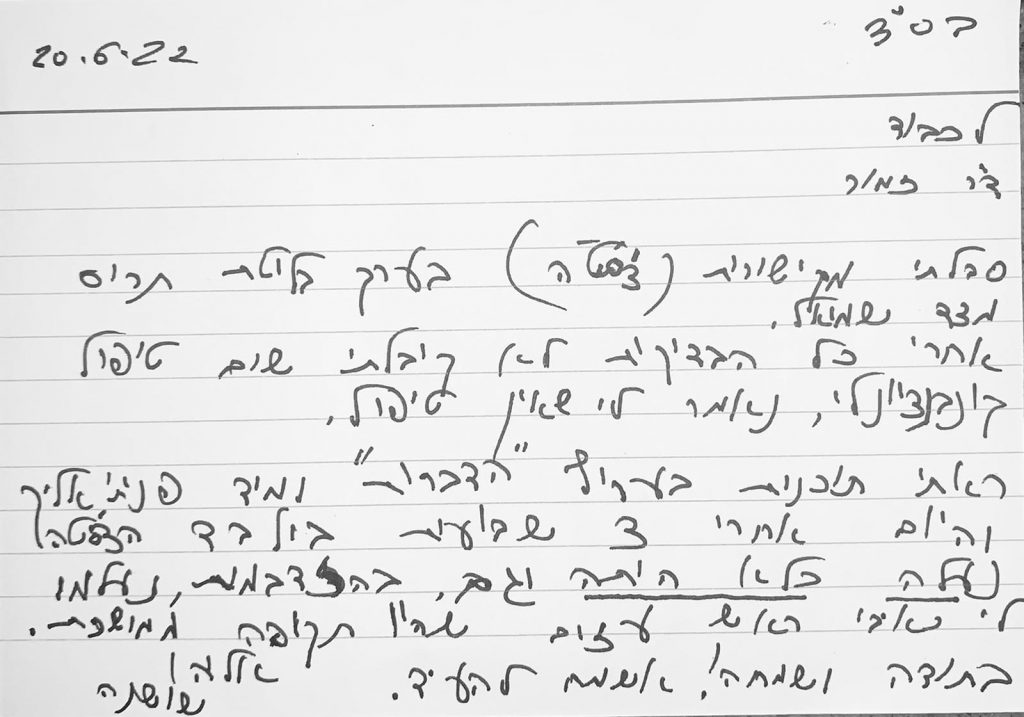 בס"ד
20.6.22
לכבוד
ד"ר זמיר
סבלתי מקישורית (ציסטה) בערך בלוטת תריס
מצד שמאל.
אחרי כל הבדיקות לא קיבלתי שום טיפול
קונבנציונלי, נאמר לי שאין טיפול.
ראתי תוכנית בערוץ "הדברות" ומיד פניתי אליך
והיום אחרי 3 שבועות בול בד הציסטה
נעלה כלא היתה וגם, בהזדמנות, נעלמו
לי כאבי ראש עזים שהיו תקופה ממושכת.
בתודה ושמחה! אשמח להעיד.
שושנה